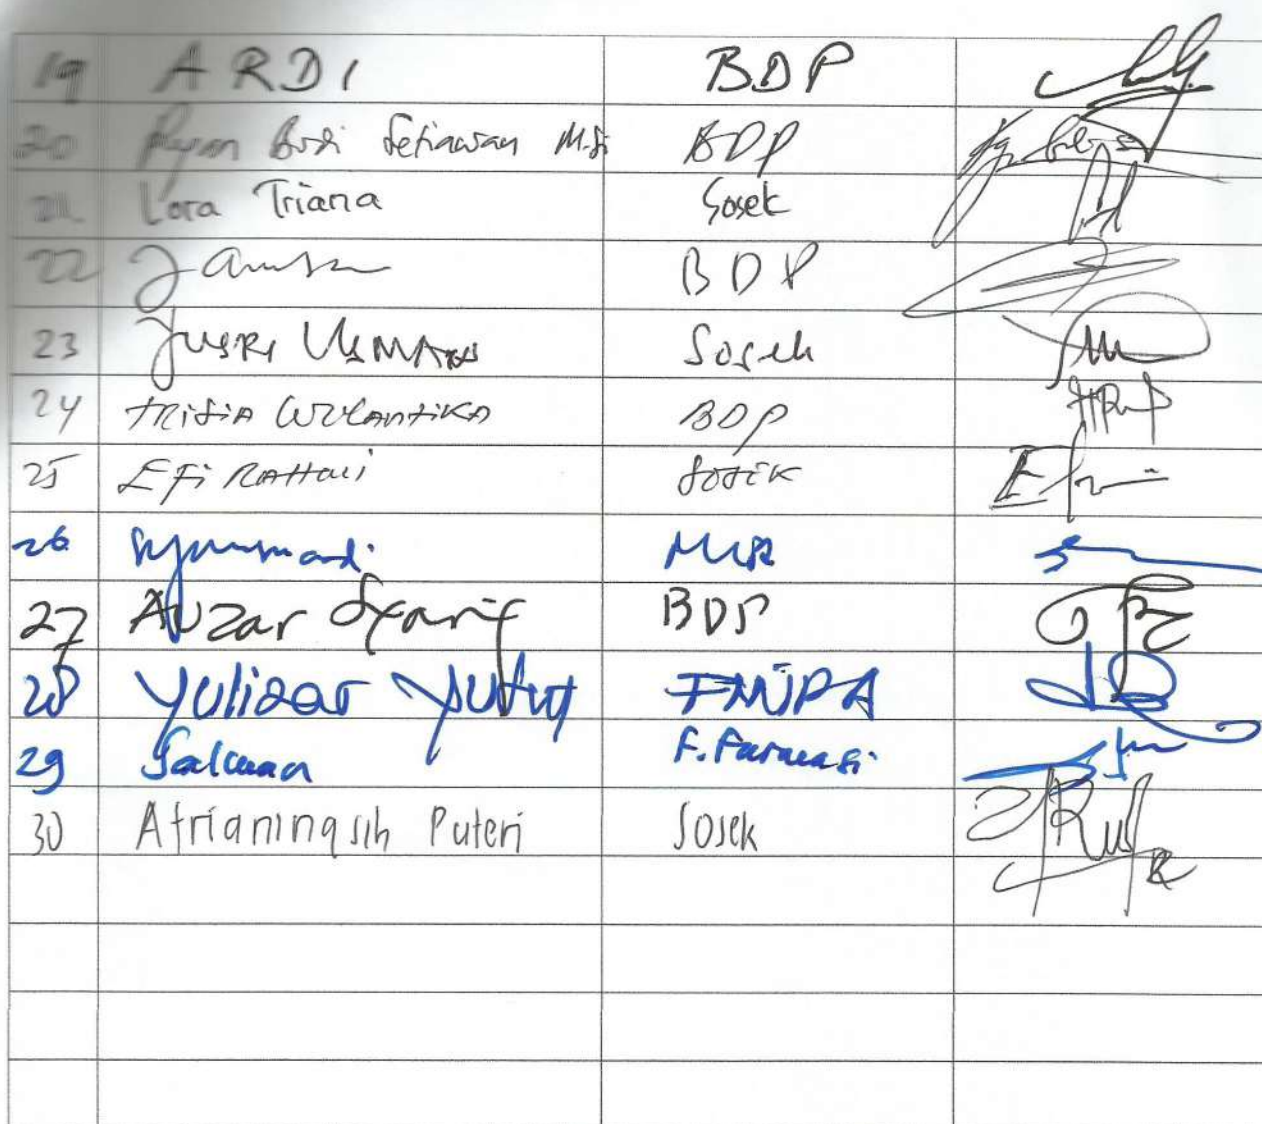 19 ARDI BDP
20 Budi Setiawan M.Si BDP
21 Lora Triana Sosek
22 BDP
23 Jusri Usman Sosek
24 Trisia Wulantika BDP
25 Efi RaHari Sosek
26
27 Auzar Syarif BDP
28 Yulizar Yusuf FMIPA
29 Salman F. Farmasi
30 Afrianingsih Puteri Sosek